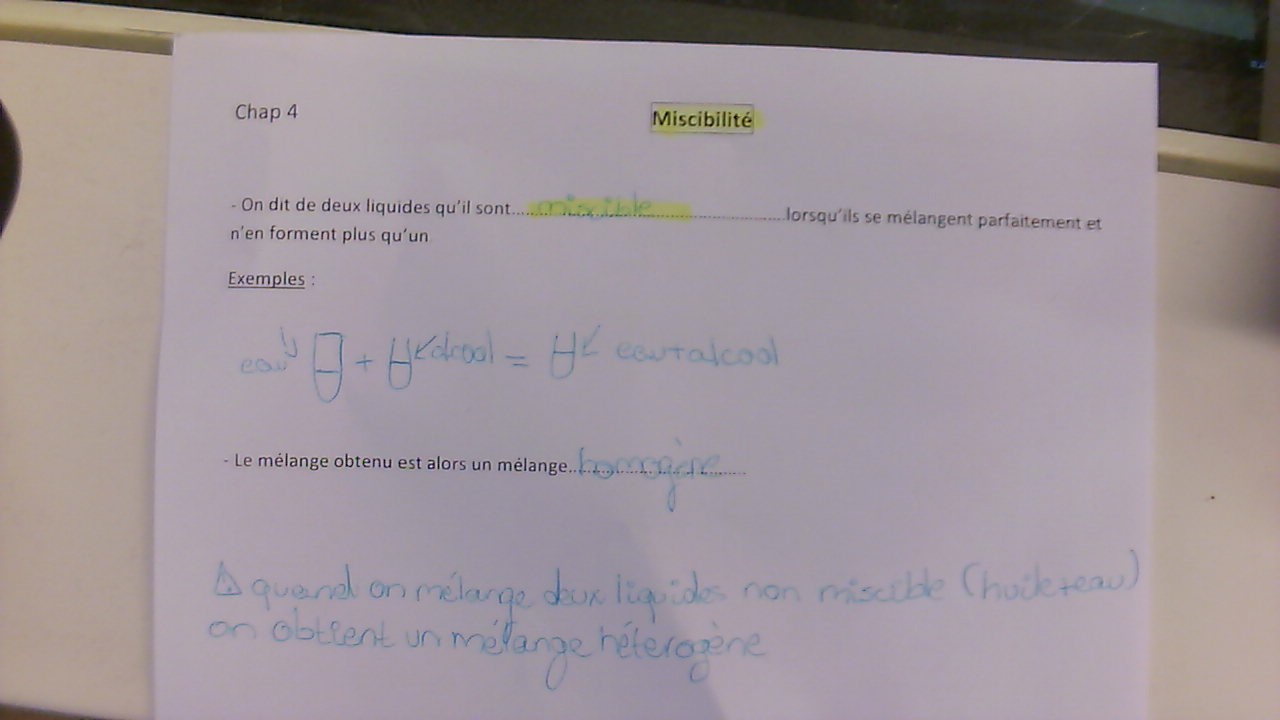 Chap 4
Miscibilité
- On dit de deux liquides qu'il sont.....miscible.....lorsqu'ils se mélangent parfaitement et
n'en forment plus qu'un
Exemples :
eau + alcool = eau+alcool
- Le mélange obtenu est alors un mélange..homogène...
⚠ quand on mélange deux liquides non miscible (huile+eau)
on obtient un mélange hétérogène